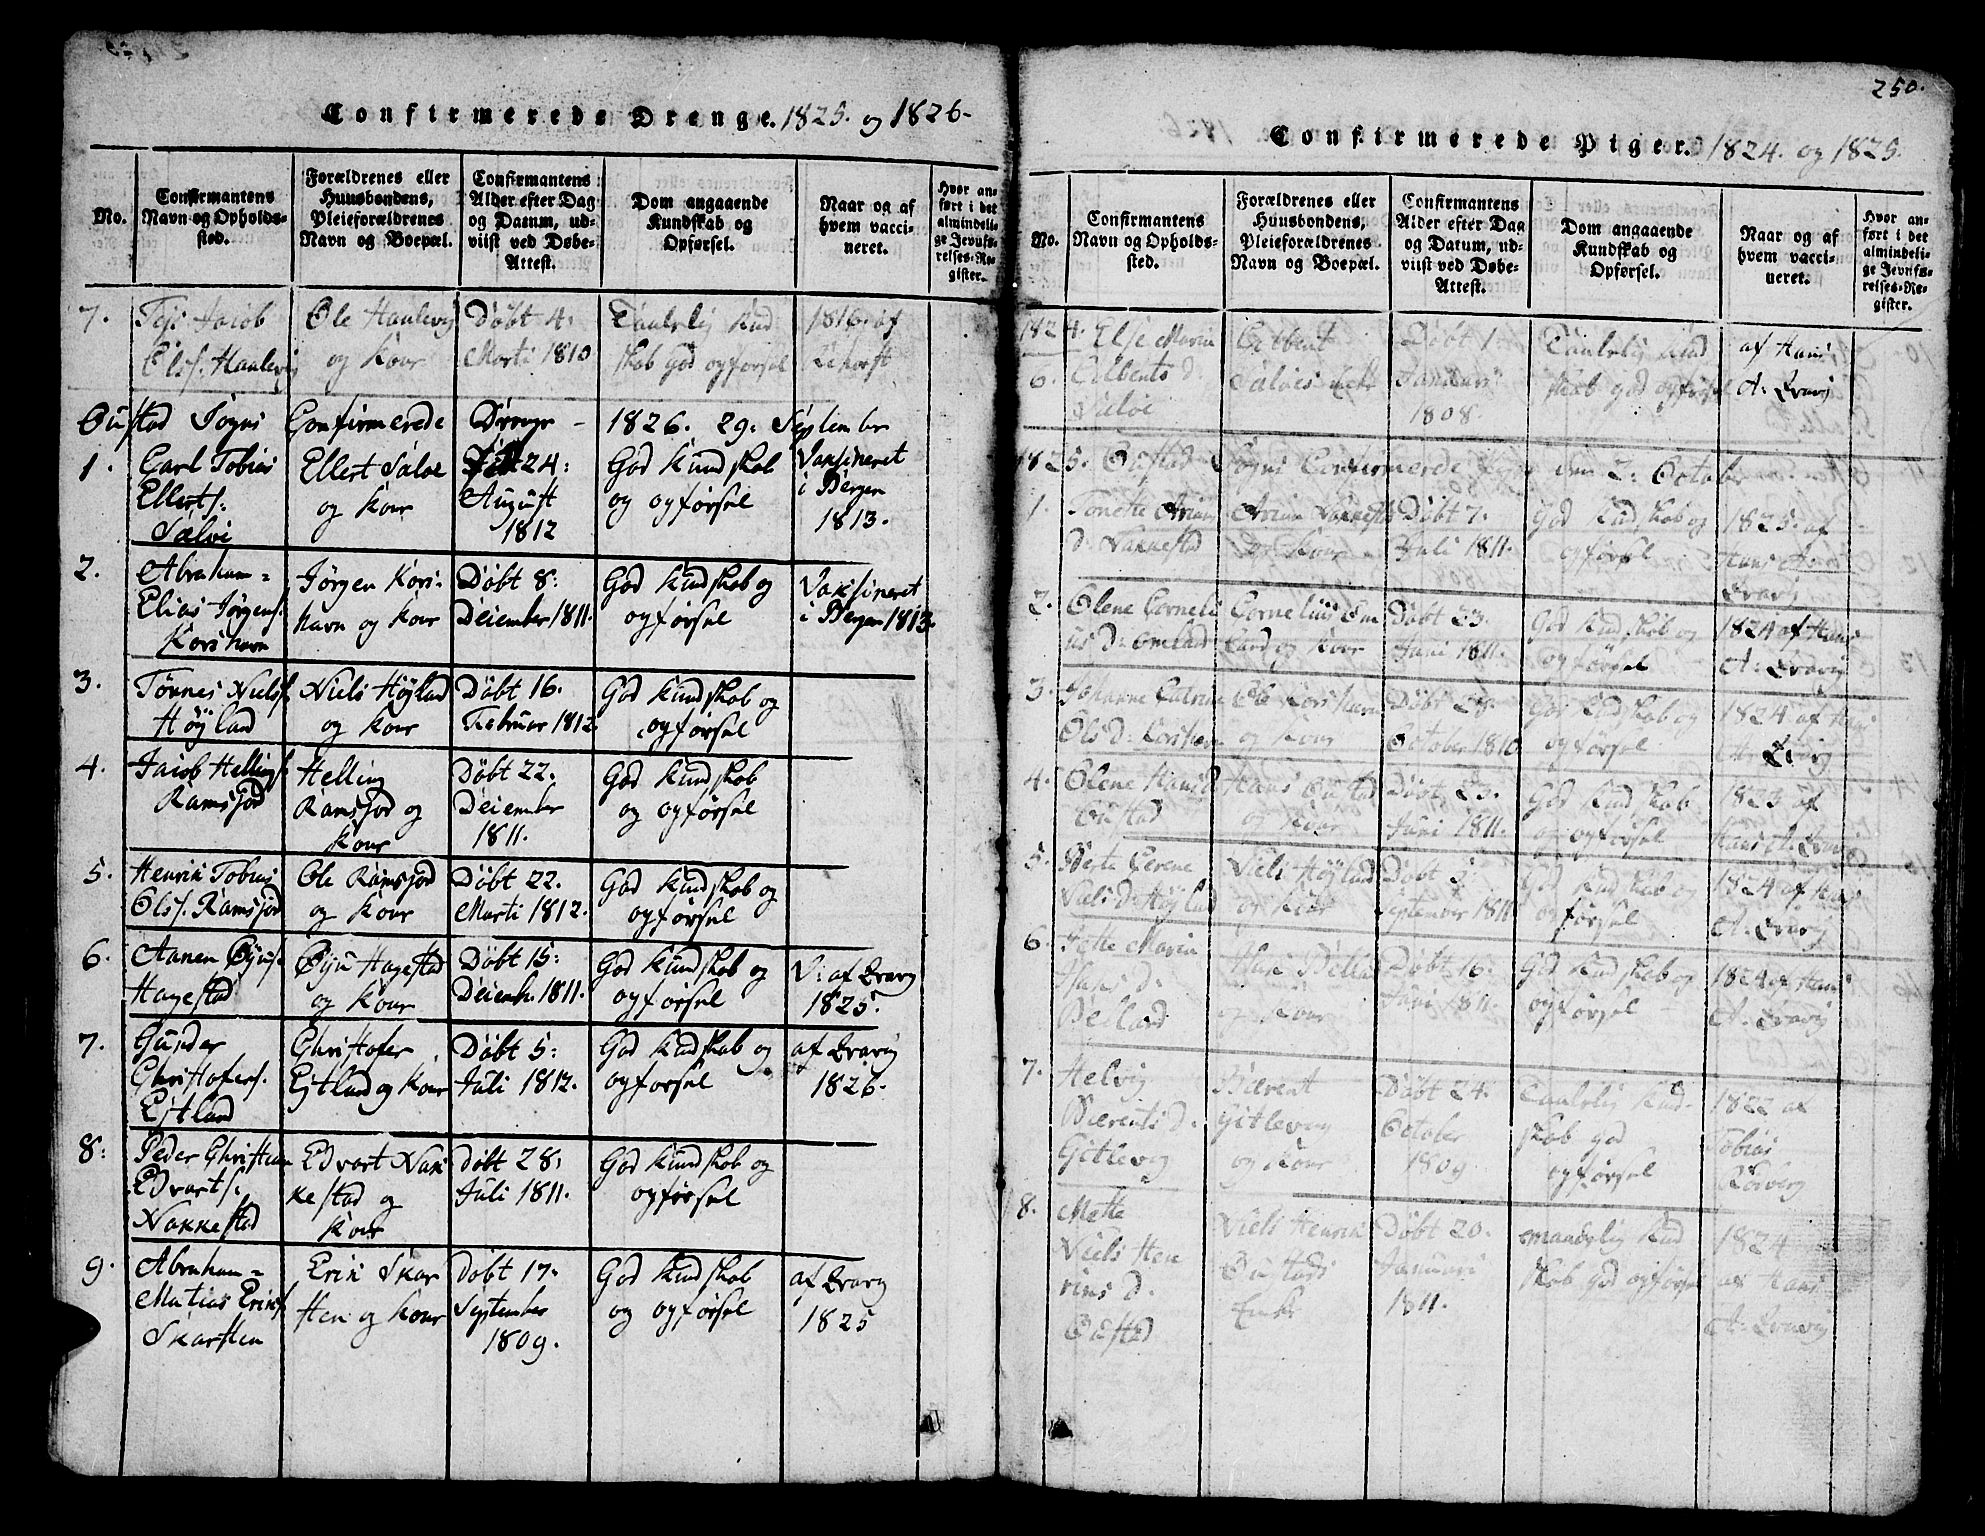 Confirmerede Drenge. 1825. og 1826-
No.
Confirmantens
Navn og Opholds-
sted.
Forældrenes eller
Huusbondens,
Pleieforældrenes
Navn og Boepæl.
Confirmantens
Alder efter Dag
og Datum, ud-
viist ved Døbe-
Attest.
Dom angaaende
Kundskab og
Opførsel.
Naar og af
hvem vacci-
neret.
Hvor an-
ført i det
almindeli-
ge Jevnfø-
relses-Re-
gister.
7.
Jacob
Ols. Haulevig
Ole Haulevig
og Kone
Døbt 4:
Marti 1810
Taalelig Kund
skab God opførsel
1816. af
Oustad Sogns Confirmerede Drenge - 1826. 29: September
1.
Carl Tobias
Ellerts:
Saloe
Ellert Saloe
og Kone
Født 24:
August
1812
God Kundskab
og opførsel
Vaksineret
i Bergen
1813.
2.
Abraham-
Elias Jørgens.
Korshavn
Jørgen Kors-
havn og Kone
Døbt 8:
Deiember 1811.
God Kundskab og
opførsel
Vaksineret
i Bergen 1813.
3.
Tønnes Niels.
Høyland
Niels Høyland
og Kone
Døbt 16.
Februar 1812.
God Kundskab og
opførsel
4.
Jacob Hellings.
Ramsjord
Helling
Ramsjord og
Kone
Døbt 22.
Deiember
1811.
God Kundskab
og opførsel
5.
Henrik Tobias
Ols. Ramsjord
Ole Ramsjord
og Kone
Døbt 22.
Marti 1812.
God Kundskab og
opførsel
6.
Aanen Øijus.
Hagestad
Øiju Hagestad
og Kone
Døbt 15:
Deiemb. 1811.
God Kundskab og
opførsel
V: af Evavig
1825.
7.
Gunder
Christofers.
Ejtland
Christofer
Ejtland og Kone
Døbt 5:
Juli 1812.
God Kundskab og
opførsel
af Evavig
1826.
8:
Peder Christian
Edvarts.
Nakkestad
Edvart Nak
kestad og
Kone
Døbt 28:
Juli 1811.
God Kundskab og
opførsel
9.
Abraham-
Matias Eriks.
Skarsten
Erik Skar
sten og Kone
Døbt 17.
September
1809.
God Kundskab
og opførsel
af Evavig
1825
250.
Confirmerede Piger. 1824. og 1825.
No.
Confirmantens
Navn og Opholds-
sted.
Forældrenes eller
Huusbondens,
Pleieforældrenes
Navn og Boepæl.
Confirmantens
Alder efter Dag
og Datum, ud-
viist ved Døbe-
Attest.
Dom angaaende
Kundskab og
Opførsel.
Naar og af
hvem vacci-
neret.
Hvor an-
ført i det
almindeli-
ge Jevnfø-
relses-Re-
gister.
1824.
6.
Else Maria
Eilberts d.
Saloe
Eilbert
Saloes Enke
Døbt 1.
Januari
1808.
Taalelig Kund
skab god opførsel
af Hans
A: Evavig
1825. Oustad Sogns Confirmerede Piger den 2: October
1.
Tonette Arians
d: Nakkestad
Arian Nakkestad
og Kone
Døbt 7.
Juli 1811.
God Kundskab og
opførsel
1825. af
Hans A:
Evavig
2.
Olene Corneli
us d: Omland
Cornelius Om
land og Kone
Døbt 23.
Juni 1811.
God Kundskab og
opførsel
1824 af Hans
A: Evavig
3.
Johanne Catrine
Ols d: Korshavn
Ole Korshavn
og Kone
Døbt 28.
October 1810.
God Kundskab og
opførsel
1824 af Hans
A: Evavig
4.
Olene Hans d
Oustad
Hans Oustad
og Kone
Døbt 23.
Juni 1811.
God Kundskab
og opførsel
1823 af
Hans A. Evavig
5.
Berte Serene
Niels d: Høyland
Niels Høyland
og Kone
Døbt 5.
September 1811
God Kundskab og
opførsel
1824 af Hans
A. Evavig
6.
Jette Maria
Hans d.
Beiland
Hans Beiland
og Kone
Døbt 16.
Juni 1811.
God Kundskab og
opførsel
1824 af Hans
A. Evavig
7.
Helvig
Bærents d.
Gitlevig
Bærent
Gitlevig
og Kone
Døbt 24.
October
1809
Taalelig Kund-
skab god
opførsel
1822 af
Tobias
8.
Mette
Niels Hen
riks d.
Oustad
Niels Henrik
Oustads
Enke
Døbt 20.
Januari
1811.
maadelig Kund
skab God opførsel
1824
af Hans
A: Evavig